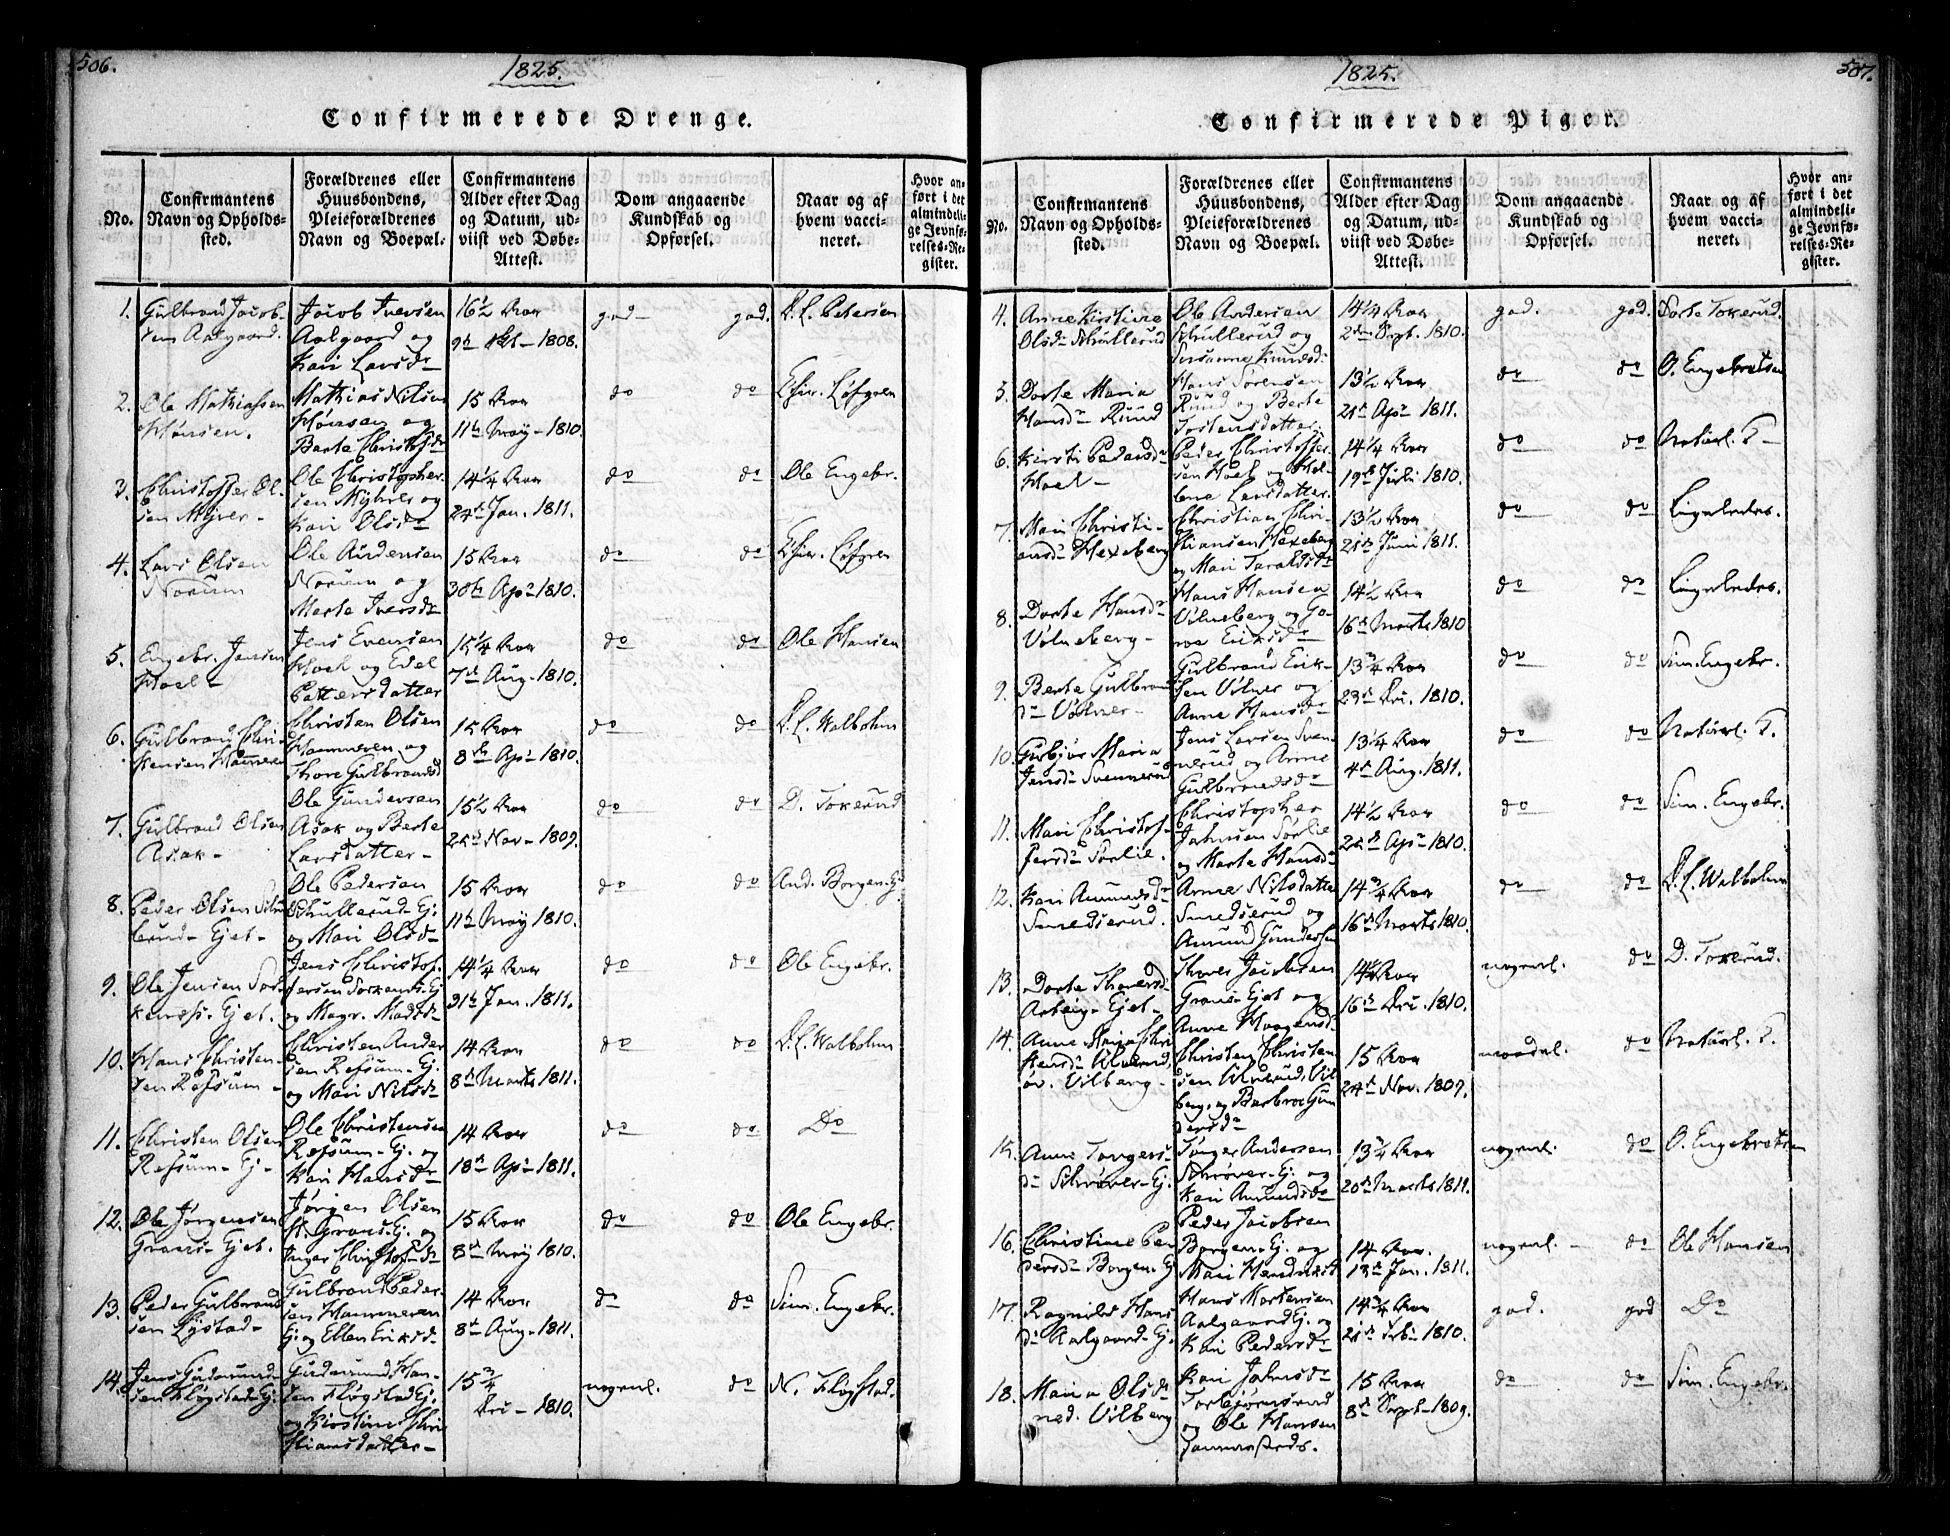 506.
1825.
Confirmerede Drenge.
No.
Confirmantens
Navn og Opholds-
sted.
Forældrenes eller
Huusbondens,
Pleieforældrenes
Navn og Boepæl.
Confirmantens
Alder efter Dag
og Datum, ud-
viist ved Døbe-
Attest.
Dom angaaende
Kundskab og
Opførsel.
Naar og af
hvem vacci-
neret.
Hvor an-
ført i det
almindeli-
ge Jevnfø-
relses-Re-
gister.
1.
Gulbrand Jacob-
sen Aalgaard.
Jacob Iversen
Aalgaard og
Kari Larsdr
16½ Aar
1808.
god god.
D. C. Petersen
2.
Ole Mathiassen
Hønsen.
Mathias Nilsen
Hønsen og
Berte Christofsdr
15 Aar
11te May - 1810.
do do
Chir. Løfgren
3.
Christoffer Ol-
sen Myhrer -
Ole Christopher-
sen Myhrer og
Kari Olsdr
14¼ Aar
24de Jan. 1811.
do do
Ole Engebr.
4.
Lars Olsen
Norum
Ole Andersen
Norum og
Marte Iversdr
15 Aar
30te Apr 1810.
do do
Chir. Løfgren
5.
Engebr. Jensen
Hoel -
Jens Evensen
Hoel og Edel
Pettersdatter
15¼ Aar
7de Aug. 1810.
do do
Ole Hansen
6.
Gulbrand Chri-
stensen Hammeren
Christen Olsen
Hammeren og
Thore Gulbrandsd
15 Aar
8de Apr 1810.
do do
D. C. Walbohm
7.
Gulbrand Olsen
Asak -
Ole Gundersen
Asak og Berte
Larsdatter -
15½ Aar
Nov - 1809.
do do
D. Tokerud
8.
Peder Olsen Skul-
lerud - Ejet -
Ole Pedersen
Skullerud - Ej.
og Mari Olsdr
15 Aar
11te May 1810.
do do
And. Borgen - Ej.
9.
Ole Jensen Tor-
Ejet.
Jens Christof-
fersen
og Magr. Madsdr
14¼ Aar
31te Jan. 1811.
do do
Ole Engebr.
10.
Hans Christen-
sen Refsum -
Christen Ander
sen Refsum - Ej.
og Mari Nilsdr
14 Aar
8de Marts 1811.
do do
D. C. Walbohm
11.
Christen Olsen
Refsum - Ej -
Ole Christensen
Refsum - Ej. og
Kari Hansdr
14 Aar
18de Apr 1811.
do do
Do
12.
Ole Jørgensen
Grans - Ejet.
Jørgen Olsen
Grans - Ej. og
Inger Christofsdr
15 Aar
8de May 1810.
do do
Ole Engebr.
13.
Peder Gulbrand
sen Lystad -
Gulbrand Peder-
sen Hammeren
Ej. og Ellen Eriksdr
14 Aar
8de Aug. 1811.
do do
Sim. Engebr.
14.
Jens Gudmund-
sen Fløgstad Ej.
Gudmund Han-
sen Fløgstad Ej.
og Kirstine Chri
stiansdatter -
15¾
1810.
nogenl. do
N. Fløgstad.
507.
1825.
Confirmerede Piger.
No.
Confirmantens
Navn og Opholds-
sted.
Forældrenes eller
Huusbondens,
Pleieforældrenes
Navn og Boepæl.
Confirmantens
Alder efter Dag
og Datum, ud-
viist ved Døbe-
Attest.
Dom angaaende
Kundskab og
Opførsel.
Naar og af
hvem vacci-
neret.
Hvor an-
ført i det
almindeli-
ge Jevnfø-
relses-Re-
gister.
4.
Anne Kirstine
Olsdr Skullerud
Ole Andersen
Skullerud og
Susanne
14¼ Aar
Sept. 1810.
god. god.
Dorte Tokerud.
5.
Dorte Maria
Hansdr Ruud
Hans Sørensen
Ruud og Berte
Tostensdatter.
13½ Aar
21de Apr 1811.
do do
O. Engebretsen
6.
Kirsti Pedersdr
Hoel -
Peder Christoffer
sen Hoel og Hel-
lene Larsdatter.
14¼ Aar
19de Juli 1810.
do do
Naturl. -
7.
Mari Christi-
ansdr Hexeberg
Christian Chri-
stiansen Hexeberg
og Mari Taraldsdr
13½ Aar
21de Juni 1811.
do do
Ligeledes.
8.
Dorte Hansdr
Vilneberg -
Hans Hansen
Vilneberg og Go-
roe Eriksdr
14½ Aar
16de Marts 1810
do do
Ligeledes.
9.
Berte Gulbrands
dr Vølner -
Gulbrand Erik-
sen Vølner og
Anne Hansdr
13¾ Aar
23de 1810.
do do
Sim. Engebr.
10.
Gubjør Maria
Jensdr Svennerud
Jens Larsen Sven-
nerud og Anne
Gulbrandsdr
13¼ Aar
4de Aug. 1811.
do do
Naturl.
11.
Mari Christof-
fersdr Sørlie.
Christopher
Jahnsen Sørlie
og Marte Hansdr
14½ Aar
Apr 1810.
do
Sim. Engebr.
12.
Kari Amundsdr
Smedserud.
Anne Nilsdatter
Smedserud og
Amund Gundersen
14¾ Aar
16de Marts 1810
do do
D. C. Walbohm
13.
Dorte Thoersdr
Ejet -
Thoer Jacobsen
Grans - Ejet og
Anne Haagensd.
14¼ Aar
16de 1810.
nogenl. do
D. Tokerud.
14.
Anne Maria Chri
stensdr
Vilberg -
Christen Christen
sen Vil-
berg, og Barbroe Gun
dersdr
15 Aar
24de Nov. 1809.
maadel. do
Naturl.
15.
Anne Tongers-
dr Schrøver - Ej.
Tonger Andersen
Schrøver - Ej. og
Kari Amundsdr
13¾ Aar
20de Marts 1811.
nogenl. do
O. Engebretsen
16.
Christine Pe-
dersdr Borgen - Ej
Peder Jacobsen
Borgen - Ej. og
Mari Hendriksd.
14 Aar.
Jan. 1811.
nogenl. - do
Ole Hansen
17.
Ragnild Hans
dr Aalgaard - Ej.
Hans Mortensen
Aalgaard Ej. og
Kari Pedersdr
14¾ Aar
21de Febr 1810.
god. god
Do
18.
Maria Olsdr
ned. Vilberg
Kari Jahnsdr
og Ole Hansen
15 Aar
8de Sept - 1809.
do do
Sim. Engebr.